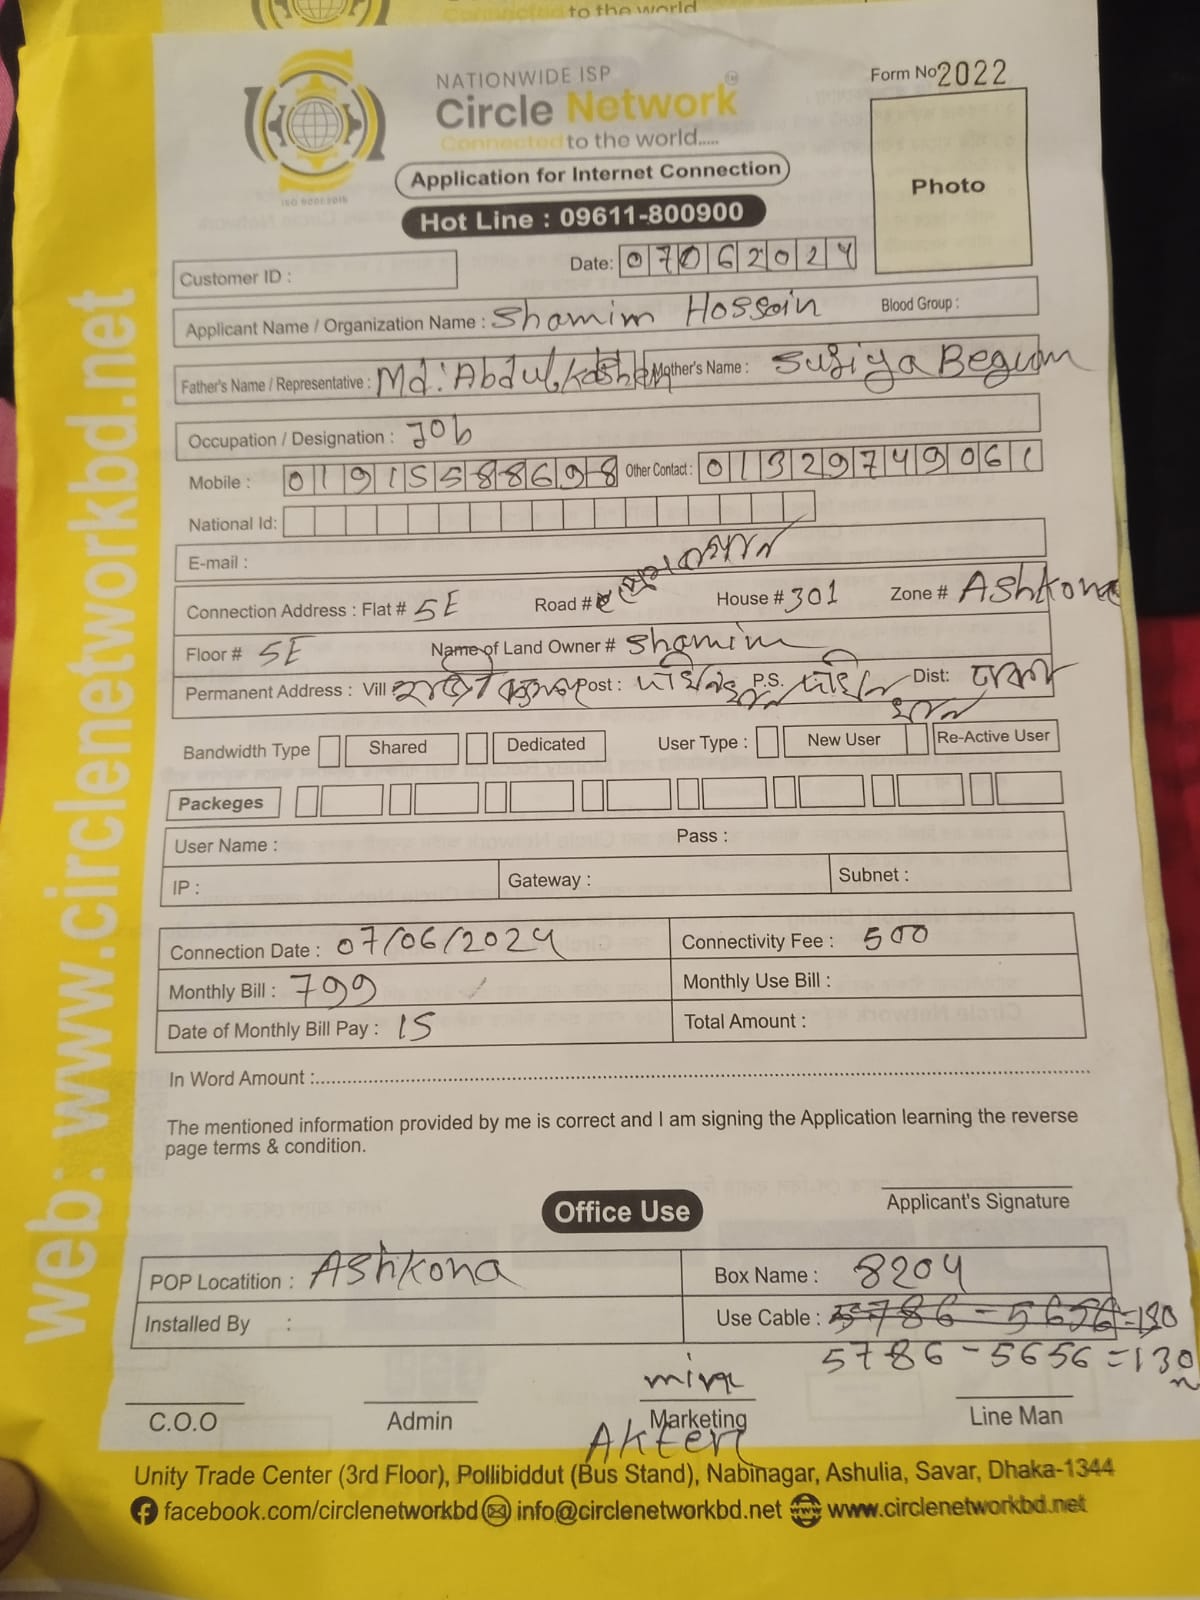 to the world
NATIONWIDE ISP
Circle Network
Connected to the world.....
ISO 9001:2015
Form No 2022
Photo
Application for Internet Connection
Hot Line : 09611-800900
Customer ID :
Date: 07062024
Applicant Name / Organization Name : Shamim Hossain Blood Group :
Father's Name / Representative : Md. Abdul Kashem Mother's Name : Sufiya Begum
Occupation / Designation : Job
Mobile : 01915588698 Other Contact : 01329749061
National Id:
E-mail :
Connection Address : Flat # 5E Road # House # 301 Zone # Ashkona
Floor # 5E Name of Land Owner # Shamim
Permanent Address : Vill Post : P.S. Dist: ঢাকা
Bandwidth Type Shared Dedicated User Type : New User Re-Active User
Packeges
User Name : Pass :
IP : Gateway : Subnet :
Connection Date : 07/06/2024 Connectivity Fee : 500
Monthly Bill : 799 Monthly Use Bill :
Date of Monthly Bill Pay : 15 Total Amount :
In Word Amount :
The mentioned information provided by me is correct and I am signing the Application learning the reverse
page terms & condition.
Applicant's Signature
Office Use
POP Locatition : Ashkona Box Name : 8204
Installed By : Use Cable : 5786 - 5656 = 130
5786 - 5656 = 130
C.O.O Admin Marketing Line Man
Akter
Unity Trade Center (3rd Floor), Pollibiddut (Bus Stand), Nabinagar, Ashulia, Savar, Dhaka-1344
facebook.com/circlenetworkbd info@circlenetworkbd.net www.circlenetworkbd.net
web: www.circlenetworkbd.net